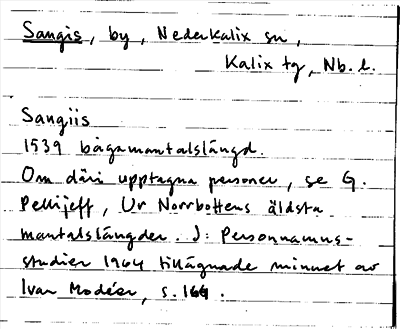 Sangis, by, Nederkalix sn,
Kalix tg, Nb. l.
Sangiis
1539 bågamantalslängd.
Om däri upptagna personer, se G.
Pellijeff, Ur Norrbottens äldsta
mantalslängder. I: Personnamns-
studier 1964 tillägnade minnet av
Ivar Modéer, s. 169.